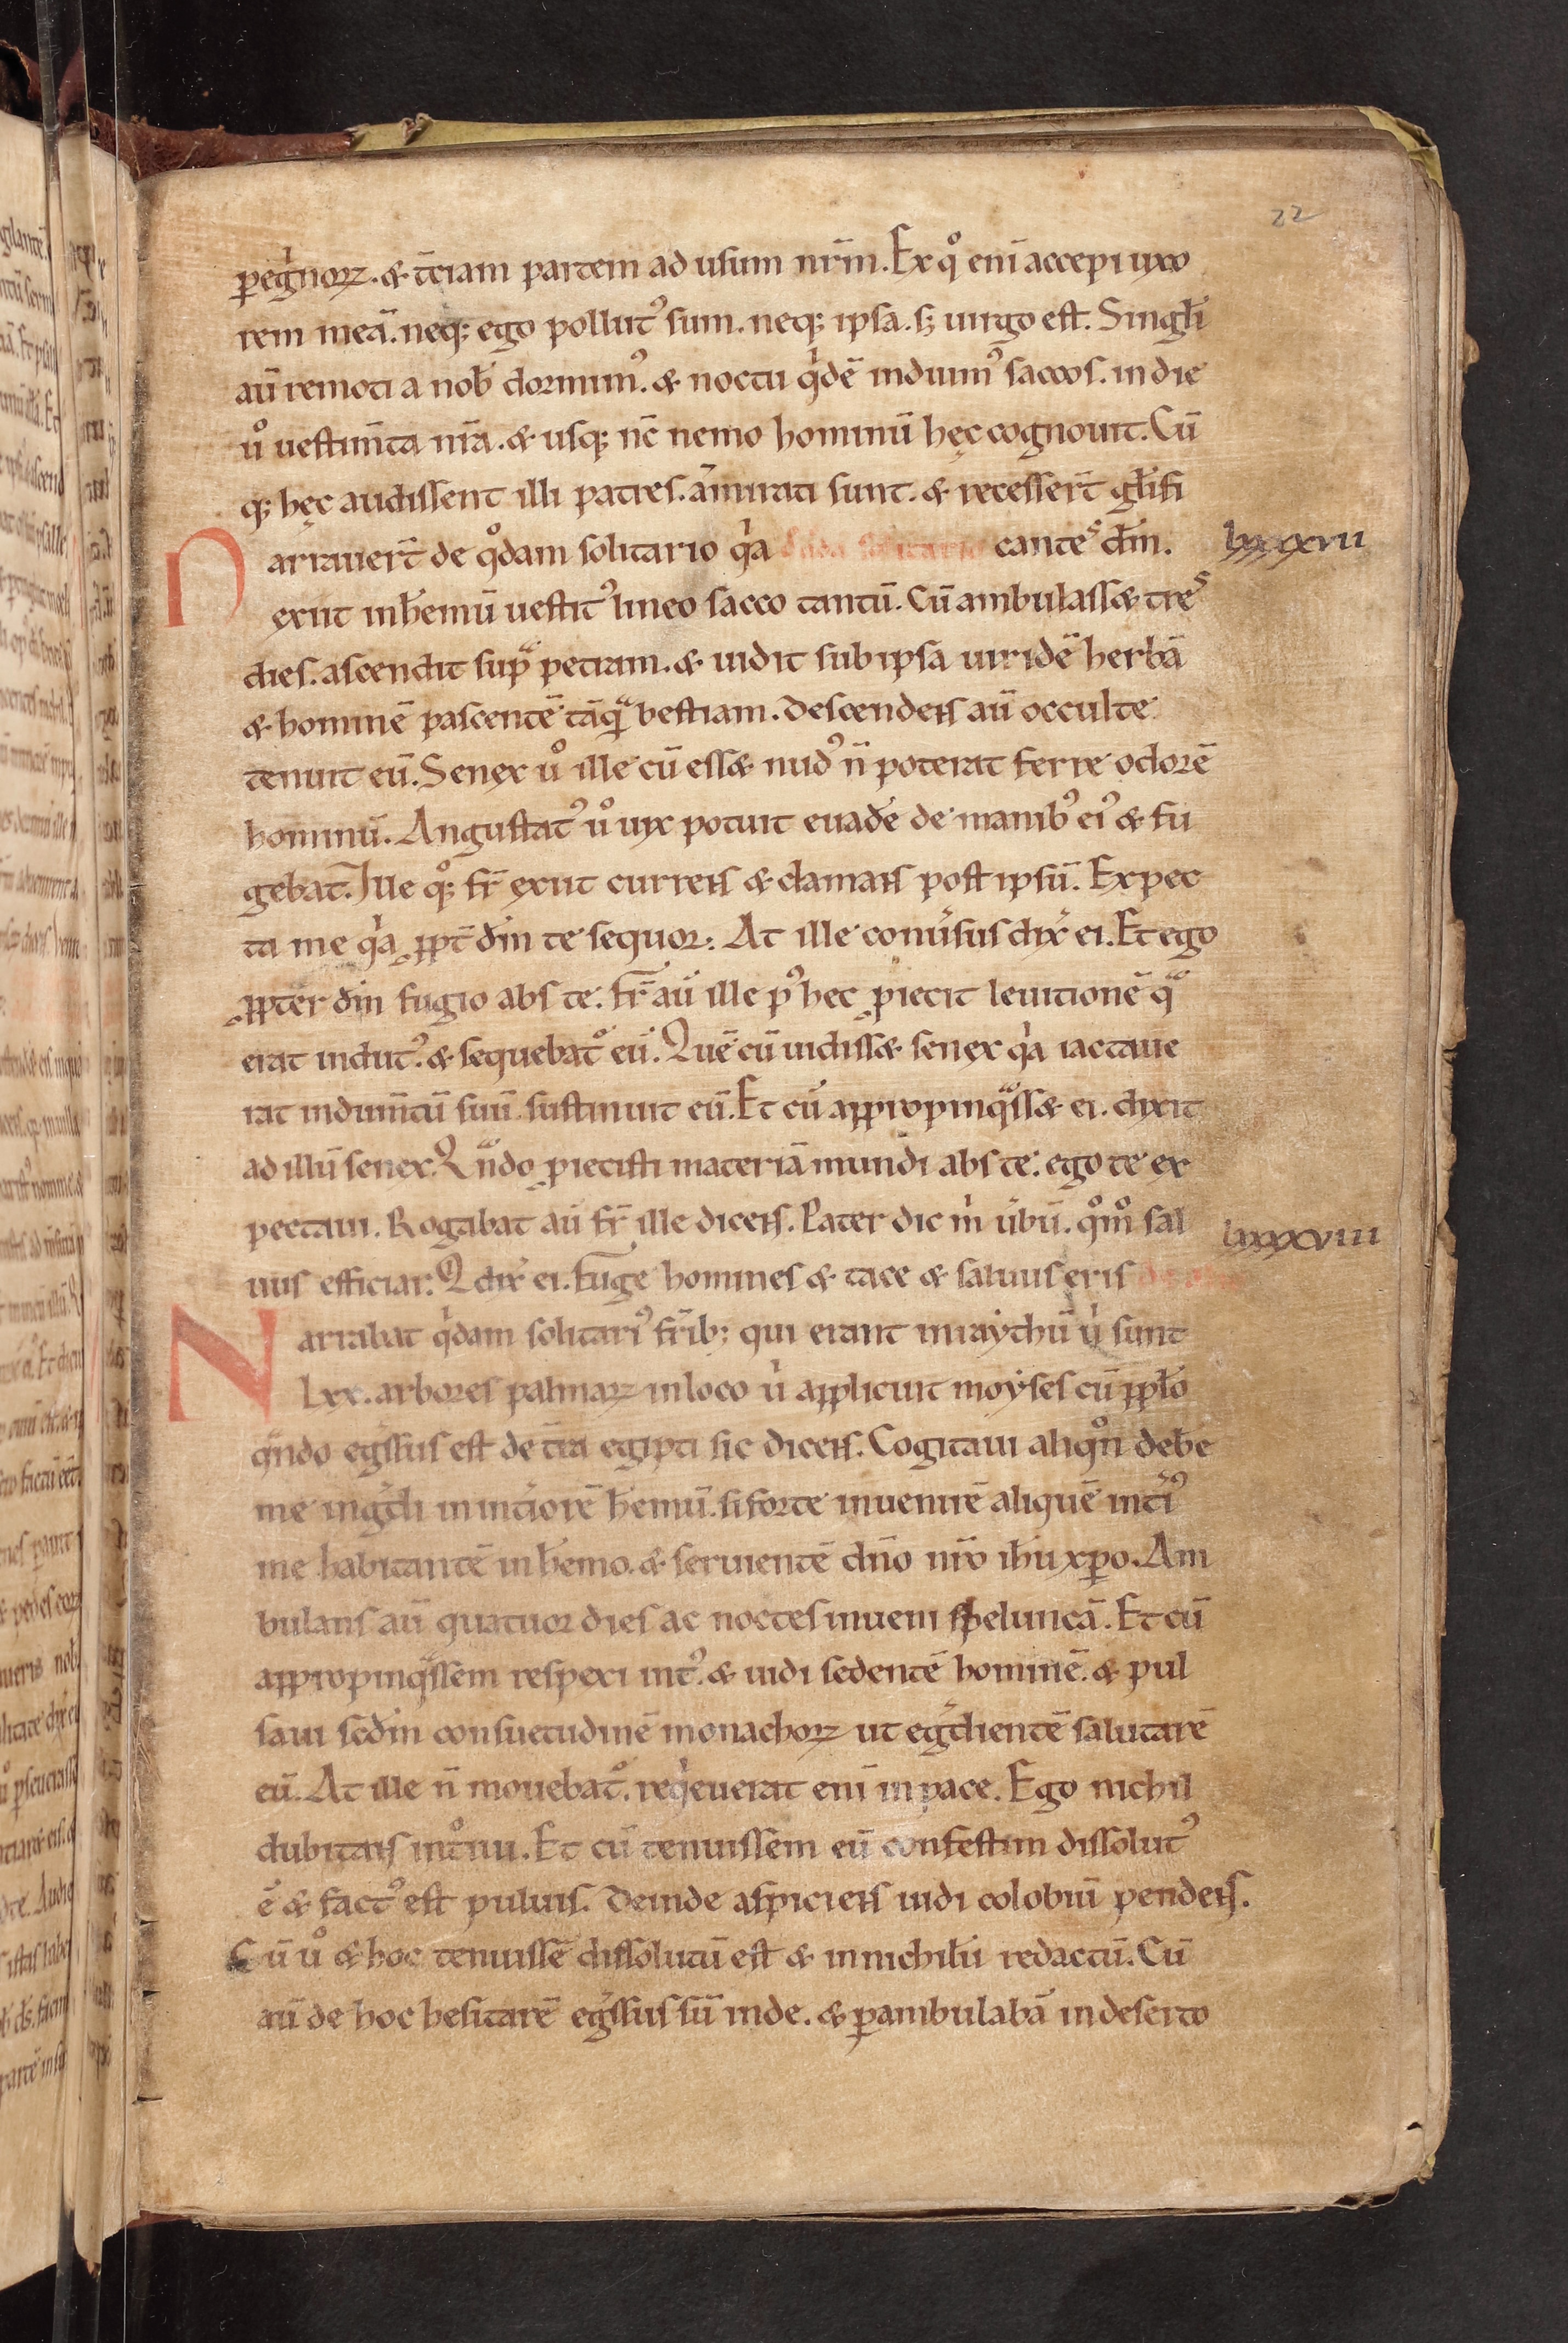 22
peg̍noꝝ. & t̄ciam partem ad usum nr̄m. Ex qͦ eni᷑ accepi uxo
rem meā. neqꝫ ego pollutꝰ sum. neqꝫ ipsa. sꝫ uirgo est. Singłi
aū remoti a nob̄ dormimꝰ. & noctu q̍dē induimꝰ saccos. in die
uͦ uestim̄ta nr̄a. & usqꝫ nc̄ nemo hominū hęc cognouit. Cū
qꝫ hęc audissent illi patres. am̄irati sunt. & recesser̄t głifi
Narrauer̄t de qͦdam solitario q̍a cantes dm̄. lxxxxvii
exiit inhemū uestitꝰ lineo sacco tantū. Cū ambulass& tres
dies. ascendit supᷓ petram. & uidit sub ipsa uiridē herbā
& hominē pascentē tāqᷓ bestiam. Descendens aū occulte
tenuit eū. Senex uͦ ille cū ess& nudꝰ n̄ poterat ferre odorē
hominū. Angustatꝰ uͦ uix potuit euadē de manibꝰ eiꝰ & fu
gebat. Ille qͦꝫ fr̄ exiit currens & clamans post ipsū. Expec
ta me q̍a ꝓpt̄ dm̄ te sequor: At ille conūsus dix̄ ei. Et ego
ꝓpter dm̄ fugio abs te. fr̄ aū ille pꝰ hec ꝓiecit leuitionē qᷓ
erat indutꝰ. & sequebatͦ eū. Quē cū uidiss& senex q̍a iactaue
rat indum̄tū suū sustinuit eū. Et cū appropinqᷓss& ei. dixit
ad illū senex. Qᷓndo ꝓiecisti materiā mundi abs te. ego te ex
pectaui. Rogabat aū fr̄ ille dicens. Pater dic m̍ ūbū. qͦmͦ sal
uus efficiar. Q dix̄ ei. Fuge homines & tace & saluus eris lxxxxviii
Narrabat q̍dam solitariꝰ fr̄ibꝫ qui erant in raythū u̍ sunt
Lxx. arbores palmaꝝ in loco u̍ applicuit moyses cū ppło
qᷓndo eg̍ssus est de t̄ra egipti sic dicens. Cogitaui aliqͦn̄ deb̄e
me ing̍di in int̍iorē hemū. si forte inuenirē aliquē int̍iꝰ
me habitantē in hemo. & seruientē dn̄o nr̄o ih̄u xp̄o. Am
bulans aū quatuor dies ac noctes inueni speluncā. Et cū
appropinqᷓssem respexi intꝰ. & uidi sedentē hominē. & pul
saui sc̄dm̄ consuetudinē monachoꝝ ut eg̍dientē salutarē
eū. At ille n̄ mouebatͦ. req̍euerat eni᷑ in pace. Ego nichil
dubitans intͦiui. Et cū tenuissem eū confestim dissolutꝰ
ē & factꝰ est puluis. Deinde aspiciens uidi colobiū pendens.
Cū uͦ & hoc tenuissē dissolutū est & in nichilū redactū. Cū
aū de hoc hesitarē eg̍ssus sū inde. & ꝑambulabā in deserto